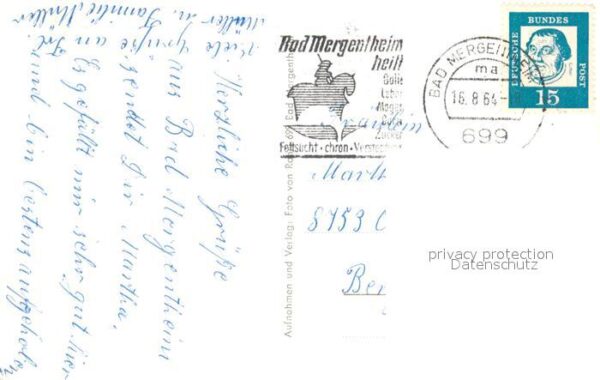 Herzliche Grüße
aus Bad Mergentheim
sendet Dir Martha.
Es gefällt mir sehr gut hier
und bin bestens aufgehoben
Viele Grüße an
Müller u. Familie Müller
Aufnahmen und Verlag: Foto von 699 Bad Mergentheim
Bad Mergentheim
heilt
Galle
Leber
Magen
Darm
Zucker
Fettsucht · chron · Verstopfung
BAD MERGENTHEIM
ma
16.8.64
699
DEUTSCHE BUNDESPOST
15
8453
privacy protection
Datenschutz